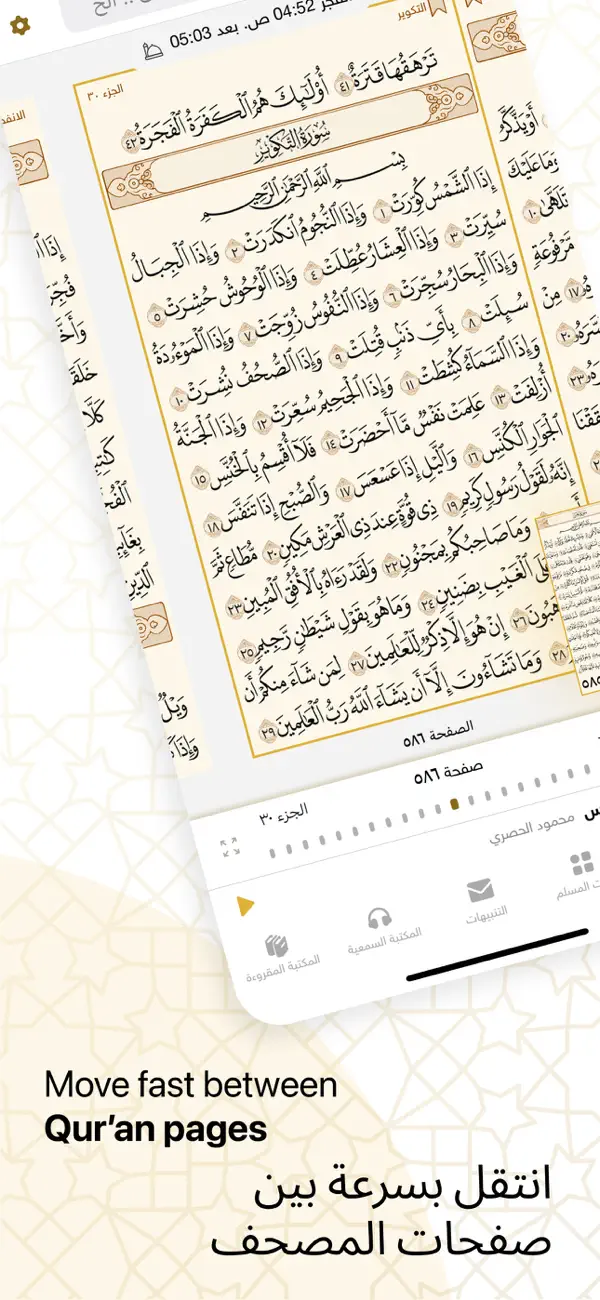 04:52 ص. بعد 05:03
التكوير
الجزء ٣٠
تَرْهَقُهَا قَتَرَةٌ ٤١ أُوْلَٰٓئِكَ هُمُ ٱلْكَفَرَةُ ٱلْفَجَرَةُ ٤٢
سُورَةُ التَّكْوِيرِ
بِسْمِ ٱللَّهِ ٱلرَّحْمَٰنِ ٱلرَّحِيمِ
إِذَا ٱلشَّمْسُ كُوِّرَتْ ١ وَإِذَا ٱلنُّجُومُ ٱنكَدَرَتْ ٢ وَإِذَا ٱلْجِبَالُ
سُيِّرَتْ ٣ وَإِذَا ٱلْعِشَارُ عُطِّلَتْ ٤ وَإِذَا ٱلْوُحُوشُ حُشِرَتْ ٥
وَإِذَا ٱلْبِحَارُ سُجِّرَتْ ٦ وَإِذَا ٱلنُّفُوسُ زُوِّجَتْ ٧ وَإِذَا ٱلْمَوْءُۥدَةُ
سُئِلَتْ ٨ بِأَيِّ ذَنۢبٍ قُتِلَتْ ٩ وَإِذَا ٱلصُّحُفُ نُشِرَتْ ١٠
وَإِذَا ٱلسَّمَآءُ كُشِطَتْ ١١ وَإِذَا ٱلْجَحِيمُ سُعِّرَتْ ١٢ وَإِذَا ٱلْجَنَّةُ
أُزْلِفَتْ ١٣ عَلِمَتْ نَفْسٌ مَّآ أَحْضَرَتْ ١٤ فَلَآ أُقْسِمُ بِٱلْخُنَّسِ ١٥
ٱلْجَوَارِ ٱلْكُنَّسِ ١٦ وَٱلَّيْلِ إِذَا عَسْعَسَ ١٧ وَٱلصُّبْحِ إِذَا تَنَفَّسَ ١٨
إِنَّهُۥ لَقَوْلُ رَسُولٍ كَرِيمٍ ١٩ ذِى قُوَّةٍ عِندَ ذِى ٱلْعَرْشِ مَكِينٍ ٢٠ مُّطَاعٍ ثَمَّ
وَمَا صَاحِبُكُم بِمَجْنُونٍ ٢٢ وَلَقَدْ رَءَاهُ بِٱلْأُفُقِ ٱلْمُبِينِ ٢٣
ٱلْغَيْبِ بِضَنِينٍ ٢٤ وَمَا هُوَ بِقَوْلِ شَيْطَٰنٍ رَّجِيمٍ ٢٥
٢٦ إِنْ هُوَ إِلَّا ذِكْرٌ لِّلْعَٰلَمِينَ ٢٧ لِمَن شَآءَ مِنكُمْ أَن
٢٨ وَمَا تَشَآءُونَ إِلَّآ أَن يَشَآءَ ٱللَّهُ رَبُّ ٱلْعَٰلَمِينَ ٢٩
أَوْ يَذَّكَّرُ
وَمَا عَلَيْكَ
تَلَهَّىٰ ١٠
مَّرْفُوعَةٍ
١٧ مِنْ
٢٠
٢٣
كَلَّا
ٱلدِّينِ
وَيْلٌ
الصفحة ٥٨٦
صفحة ٥٨٦
الجزء ٣٠
محمود الحصري
المسلم
التنبيهات
المكتبة السمعية
المكتبة المقروءة
Move fast between
Qur’an pages
انتقل بسرعة بين
صفحات المصحف